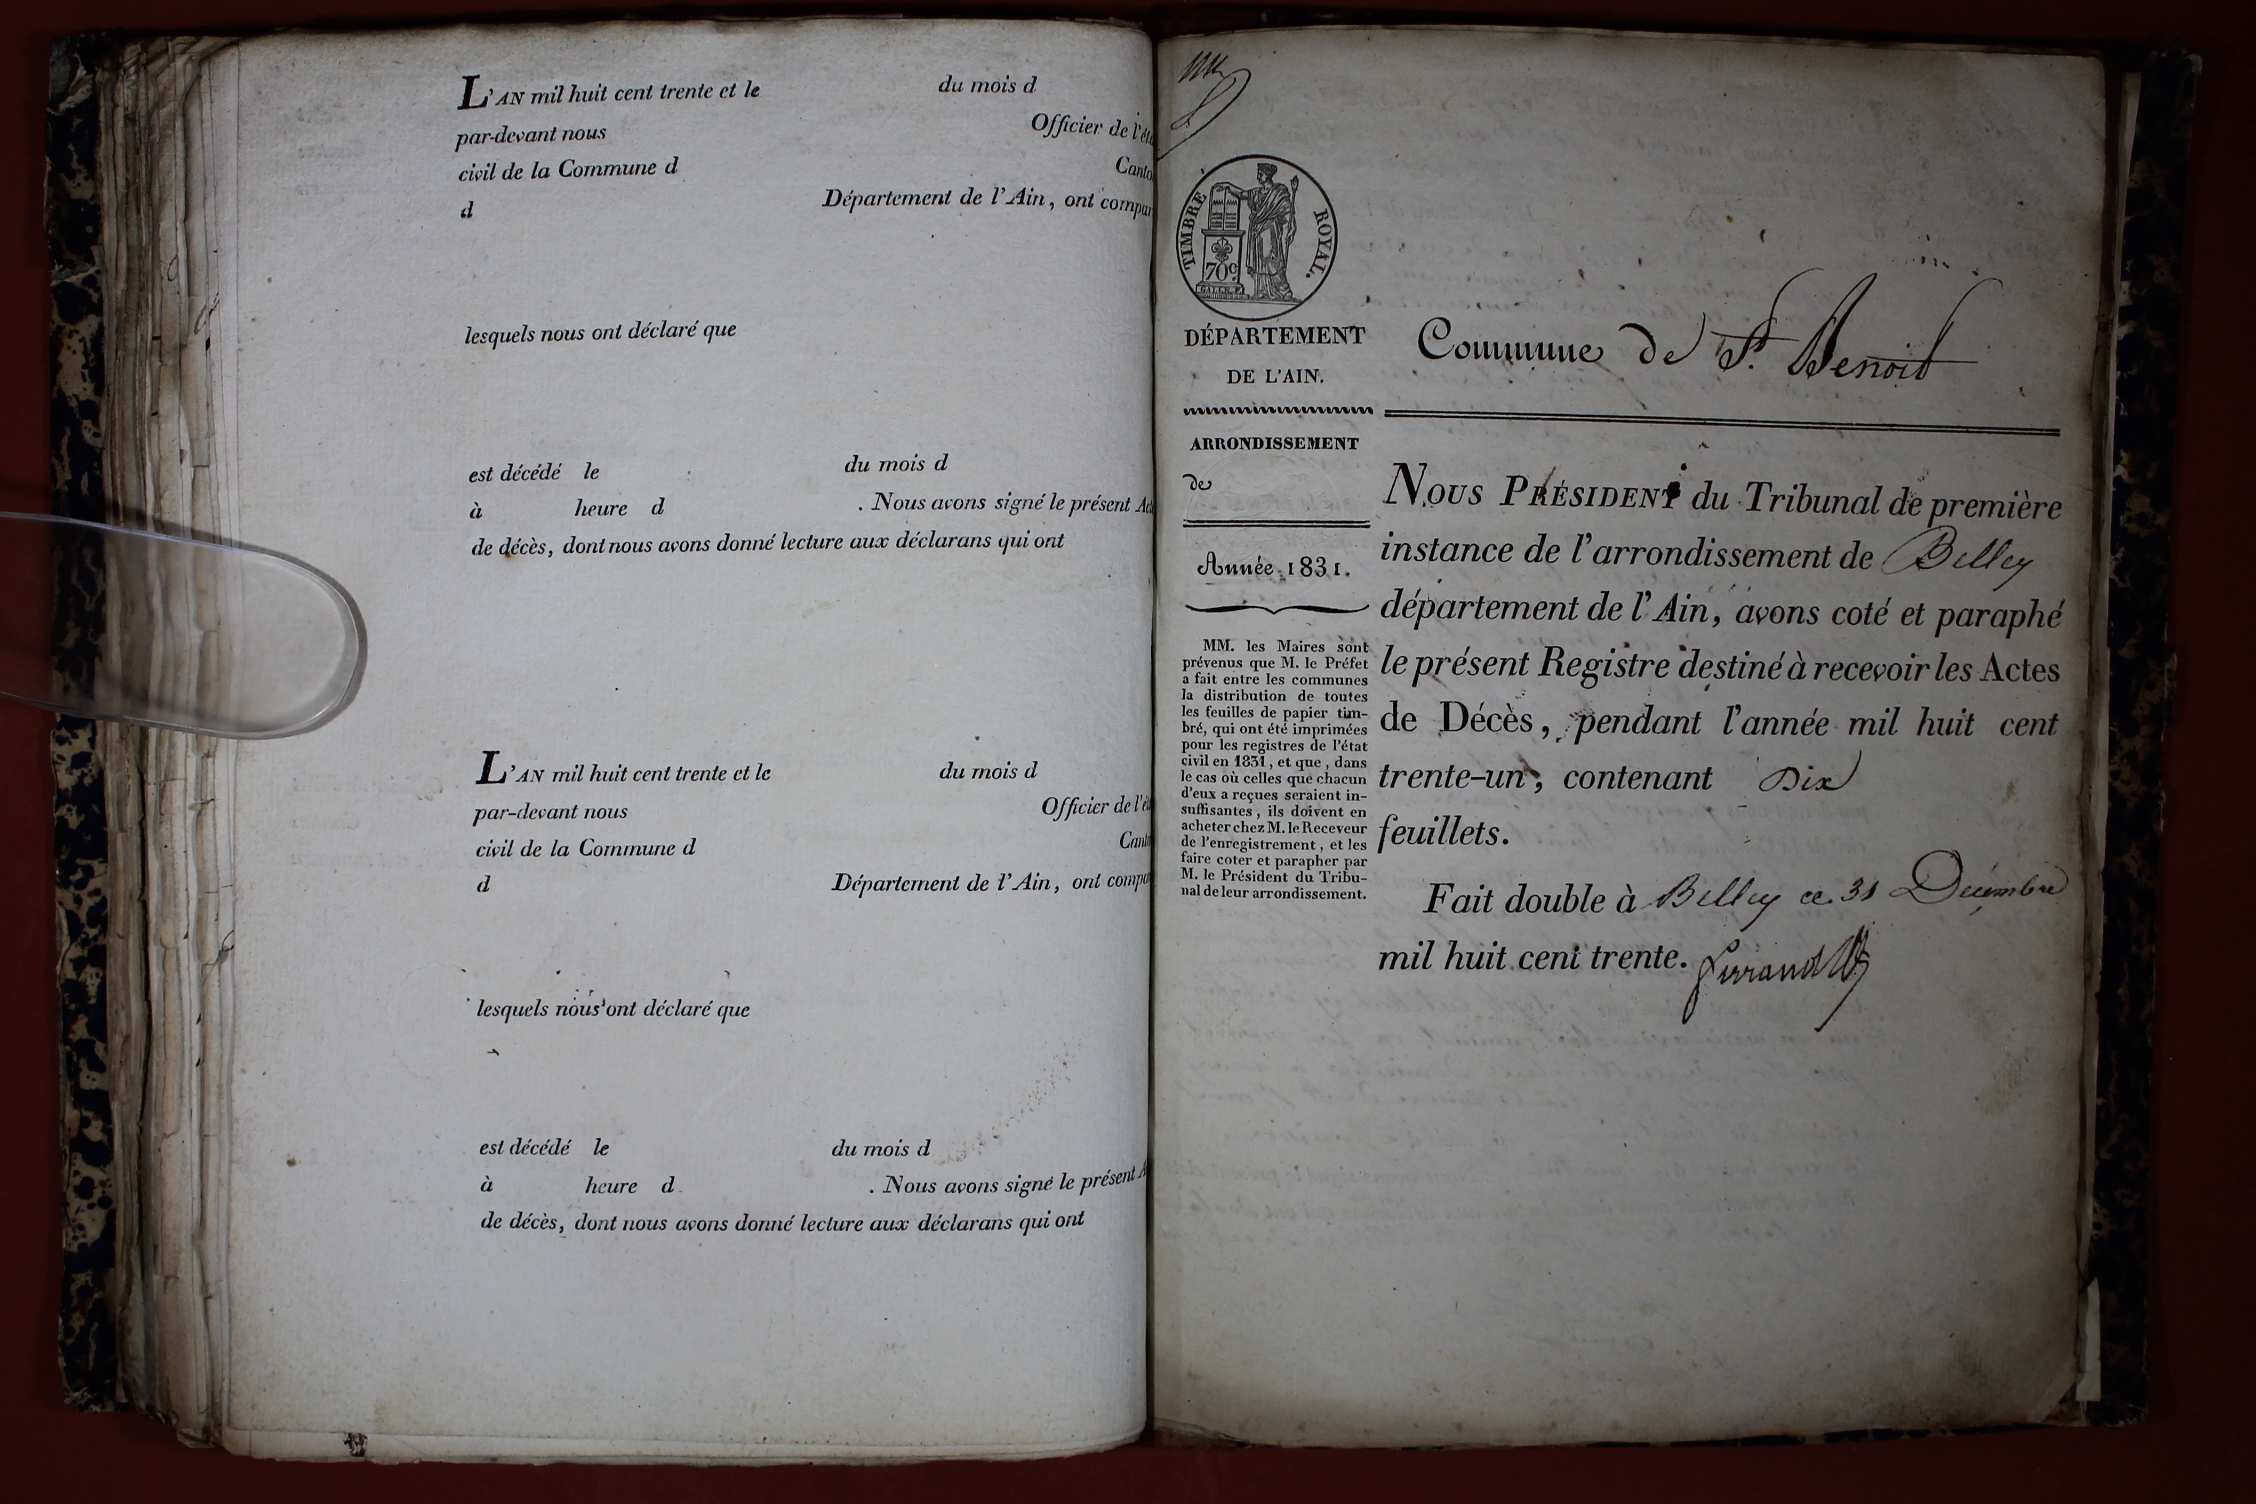 L'AN mil huit cent trente et le du mois d
par-devant nous Officier de l'ét
civil de la Commune d Canto
d Département de l'Ain, ont compar
lesquels nous ont déclaré que
est décédé le du mois d
à heure d . Nous avons signé le présent Act
de décès, dont nous avons donné lecture aux déclarans qui ont
L'AN mil huit cent trente et le du mois d
par-devant nous Officier de l'ét
civil de la Commune d Canto
d Département de l'Ain, ont compa
lesquels nous ont déclaré que
est décédé le du mois d
à heure d . Nous avons signé le présent A
de décès, dont nous avons donné lecture aux déclarans qui ont
TIMBRE ROYAL.
70c.
DÉPARTEMENT
DE L'AIN.
ARRONDISSEMENT
de
Année 1831.
MM. les Maires sont
prévenus que M. le Préfet
a fait entre les communes
la distribution de toutes
les feuilles de papier tim-
bré, qui ont été imprimées
pour les registres de l'état
civil en 1831, et que, dans
le cas où celles que chacun
d'eux a reçues seraient in-
suffisantes, ils doivent en
acheter chez M. le Receveur
de l'enregistrement, et les
faire coter et parapher par
M. le Président du Tribu-
nal de leur arrondissement.
Commune de St. Benoit
NOUS PRÉSIDENT du Tribunal de première
instance de l'arrondissement de Belley
département de l'Ain, avons coté et paraphé
le présent Registre destiné à recevoir les Actes
de Décès, pendant l'année mil huit cent
trente-un, contenant Dix
feuillets.
Fait double à Belley ce 31 Décembre
mil huit cent trente.